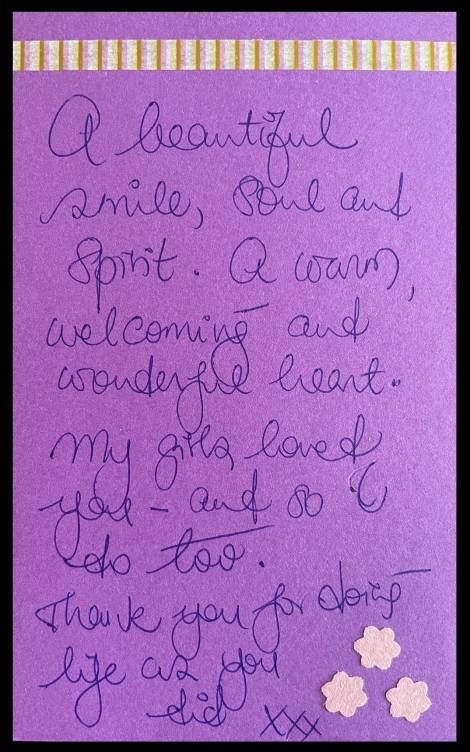 A beautiful
smile, soul and
spirit. A warm,
welcoming and
wonderful heart.
My girls loved
you - and so
I do too.
Thank you for doing
life as you
did xxx